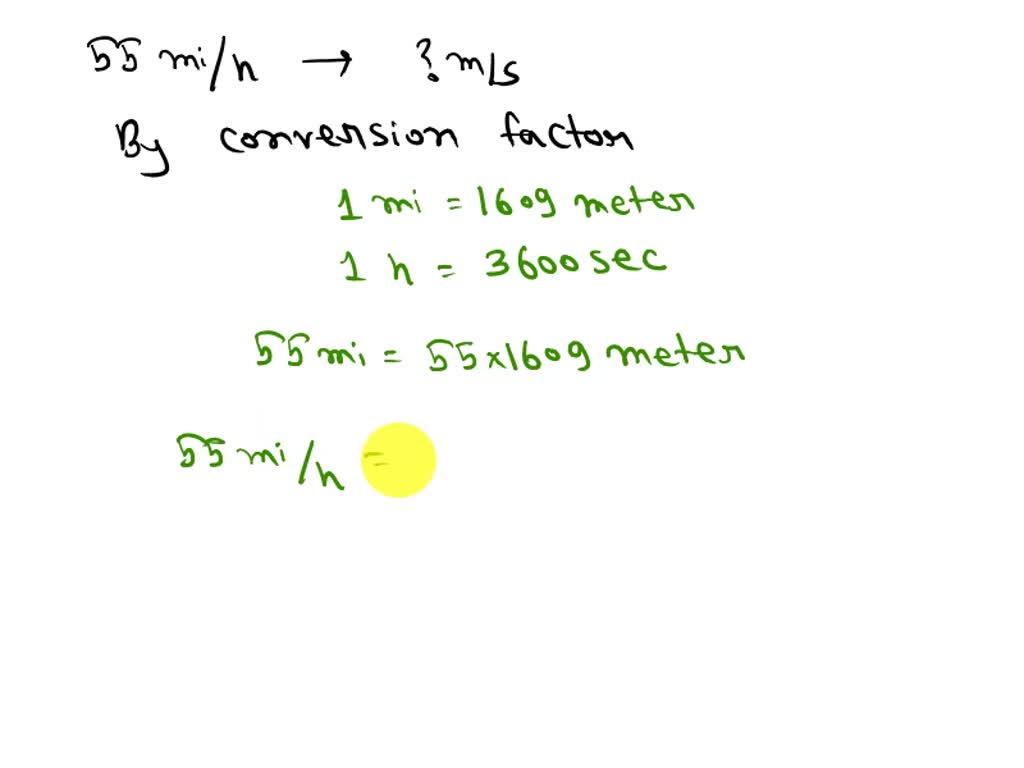 55 mi/h → ? m/s
By conversion factor
1 mi = 1609 meter
1 h = 3600 sec
55 mi = 55×1609 meter
55 mi/h =